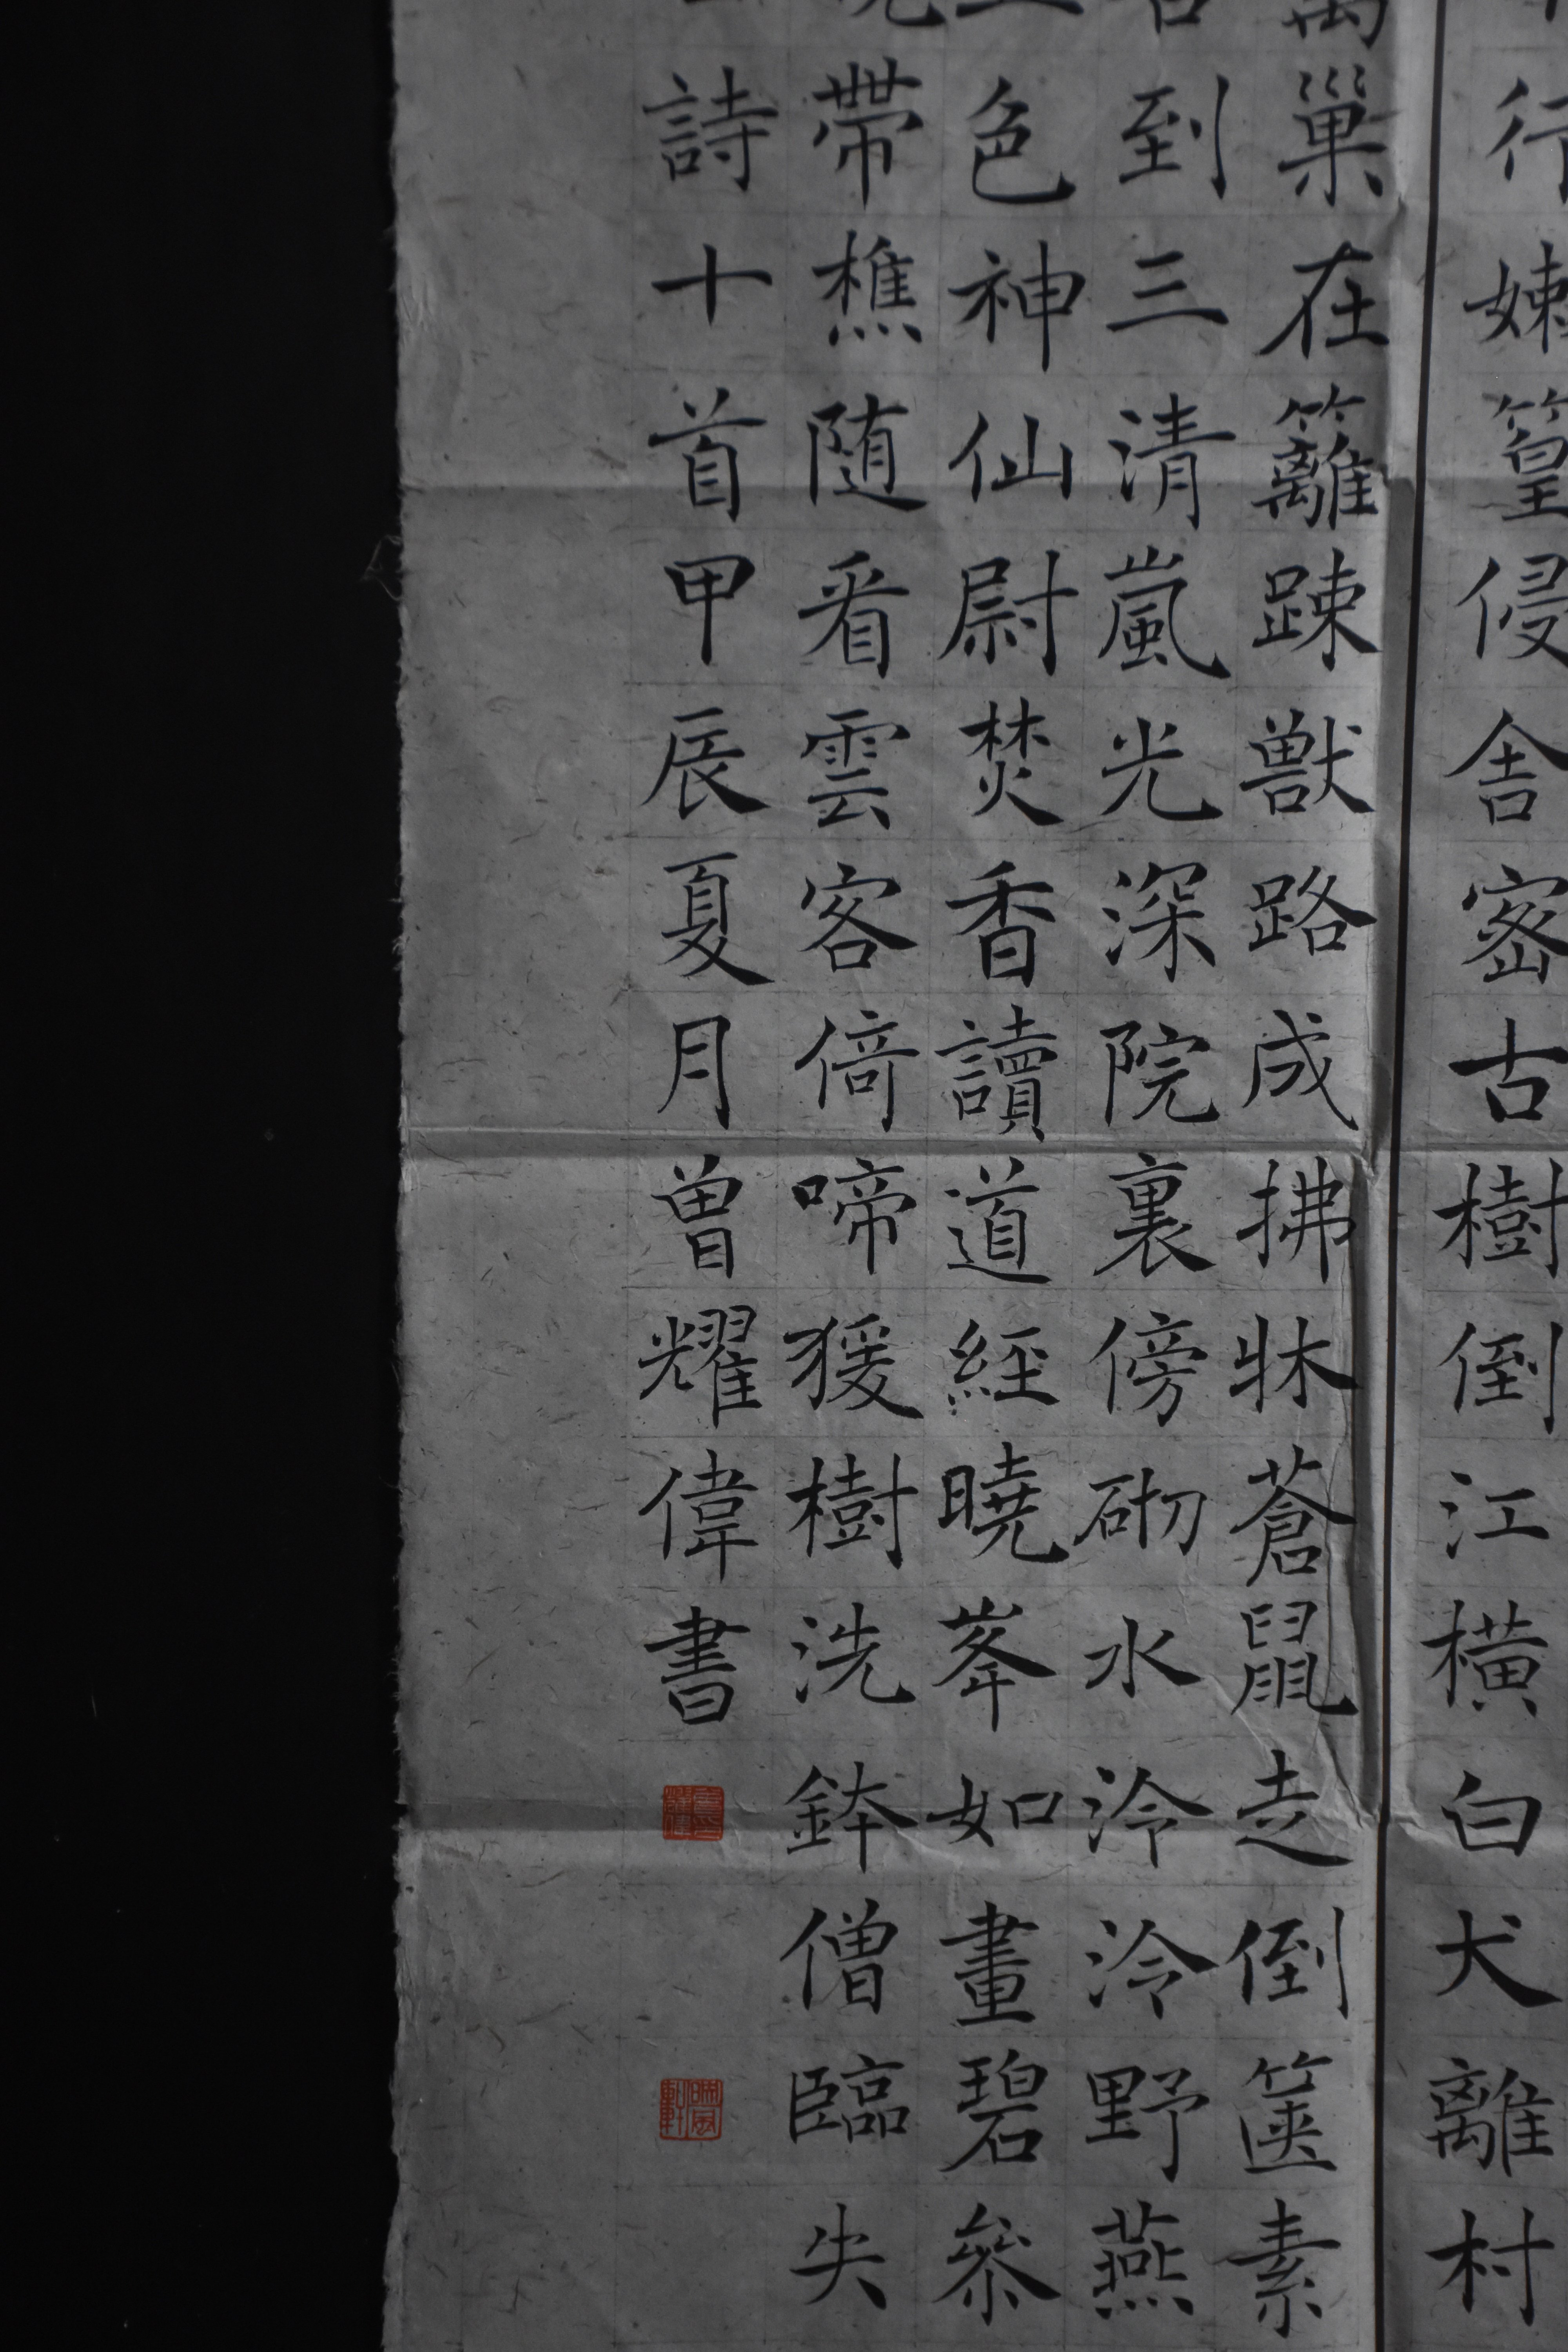 行娕篁侵舎密古樹倒江橫白犬離村
巢在籬踈獣路成拂牀蒼鼠走倒箧素
到三清嵐光深院裏傍砌水泠泠野燕
色神仙尉焚香讀道經曉峯如畫碧叅
帶樵随看雲客倚啼猨樹洗鉢僧臨失
詩十首甲辰夏月曾耀偉書